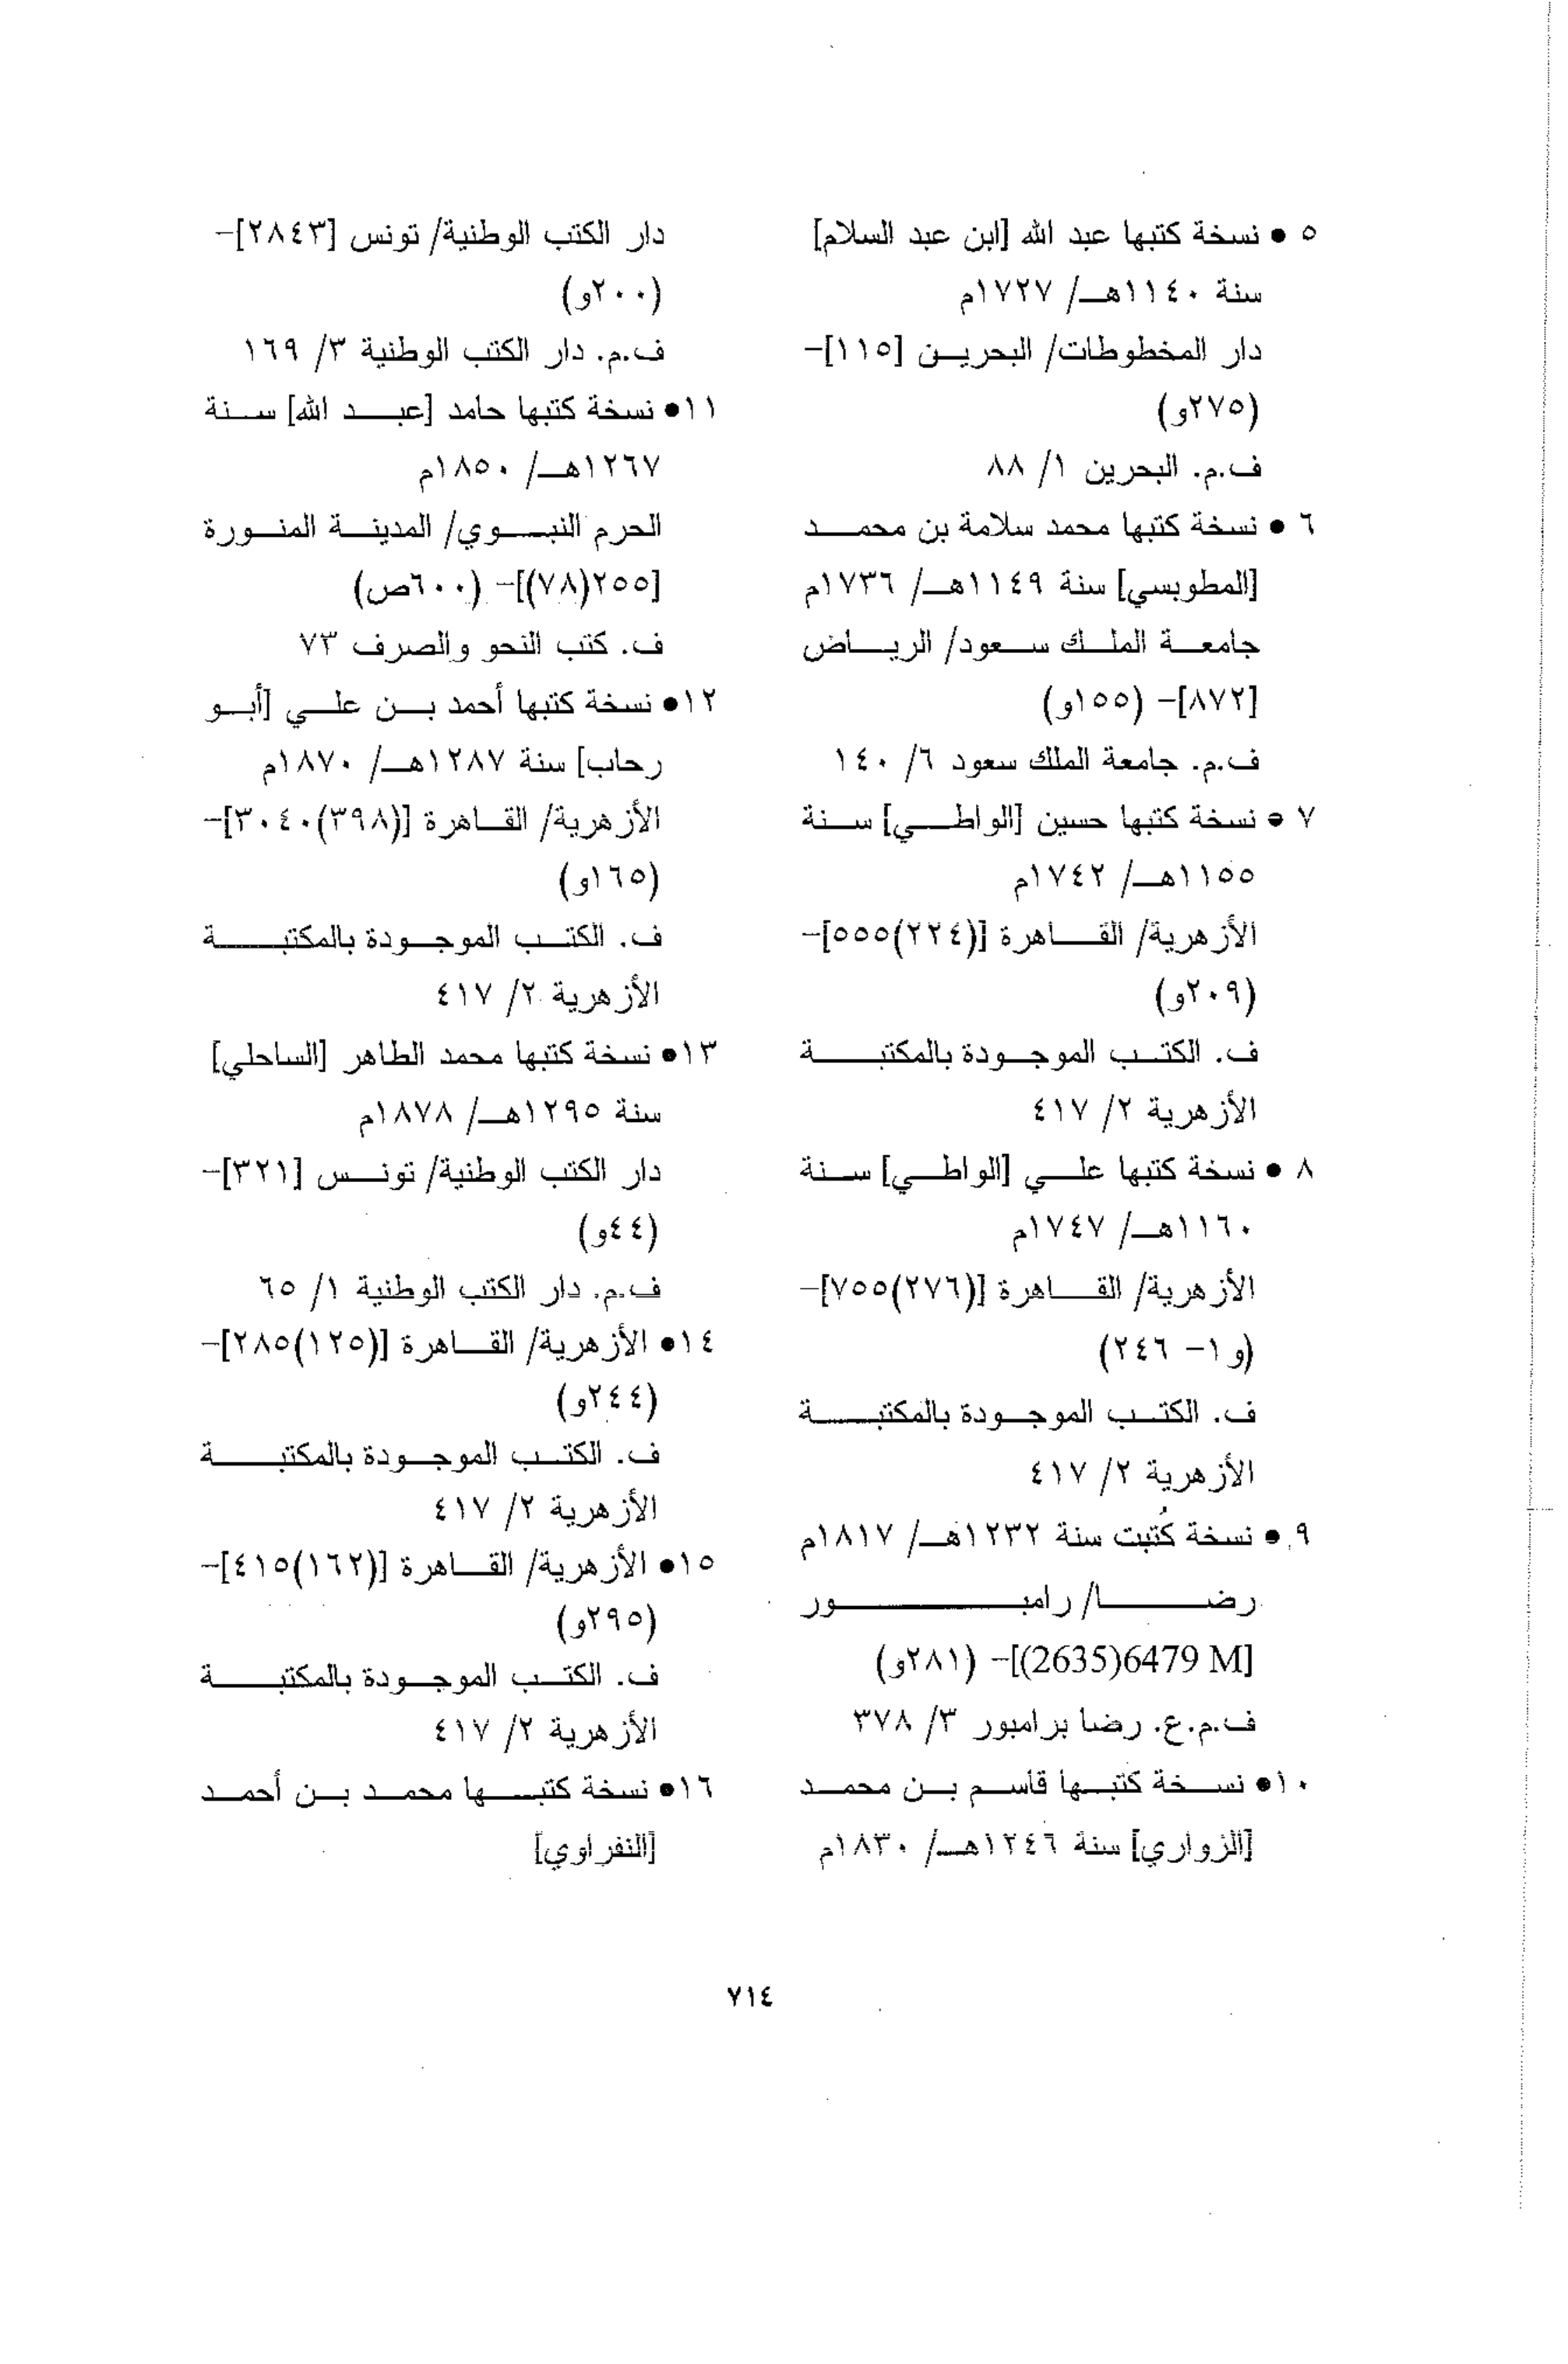 ٥ • نسخة كتبها عبد الله [ابن عبد السلام]
سنة ١١٤٠هـ/ ١٧٢٧م
دار المخطوطات/ البحرين [١١٥]-
(٢٧٥و)
ف.م. البحرين ١/ ٨٨
٦ • نسخة كتبها محمد سلامة بن محمد
[المطوبسي] سنة ١١٤٩هـ/ ١٧٣٦م
جامعة الملك سعود/ الرياض
[٨٧٢]- (١٥٥و)
ف.م. جامعة الملك سعود ٦/ ١٤٠
٧ • نسخة كتبها حسين [الواطي] سنة
١١٥٥هـ/ ١٧٤٢م
الأزهرية/ القاهرة [(٢٢٤)٥٥٥]-
(٢٠٩و)
ف. الكتب الموجودة بالمكتبة
الأزهرية ٢/ ٤١٧
٨ • نسخة كتبها علي [الواطي] سنة
١١٦٠هـ/ ١٧٤٧م
الأزهرية/ القاهرة [(٢٧٦)٧٥٥]-
(و١- ٢٤٦)
ف. الكتب الموجودة بالمكتبة
الأزهرية ٢/ ٤١٧
٩ • نسخة كُتبت سنة ١٢٣٢هـ/ ١٨١٧م
رضا/ رامبور
[(2635)6479 M]- (٢٨١و)
ف.م.ع. رضا برامبور ٣/ ٣٧٨
١٠• نسخة كتبها قاسم بن محمد
[الزواري] سنة ١٢٤٦هـ/ ١٨٣٠م
دار الكتب الوطنية/ تونس [٢٨٤٣]-
(٢٠٠و)
ف.م. دار الكتب الوطنية ٣/ ١٦٩
١١• نسخة كتبها حامد [عبد الله] سنة
١٢٦٧هـ/ ١٨٥٠م
الحرم النبوي/ المدينة المنورة
[٢٥٥(٧٨)]- (٦٠٠ص)
ف. كتب النحو والصرف ٧٣
١٢• نسخة كتبها أحمد بن علي [أبو
رحاب] سنة ١٢٨٧هـ/ ١٨٧٠م
الأزهرية/ القاهرة [(٣٩٨)٣٠٤٠]-
(١٦٥و)
ف. الكتب الموجودة بالمكتبة
الأزهرية ٢/ ٤١٧
١٣• نسخة كتبها محمد الطاهر [الساحلي]
سنة ١٢٩٥هـ/ ١٨٧٨م
دار الكتب الوطنية/ تونس [٣٢١]-
(٤٤و)
ف.م. دار الكتب الوطنية ١/ ٦٥
١٤• الأزهرية/ القاهرة [(١٢٥)٢٨٥]-
(٢٤٤و)
ف. الكتب الموجودة بالمكتبة
الأزهرية ٢/ ٤١٧
١٥• الأزهرية/ القاهرة [(١٦٢)٤١٥]-
(٢٩٥و)
ف. الكتب الموجودة بالمكتبة
الأزهرية ٢/ ٤١٧
١٦• نسخة كتبها محمد بن أحمد
[النفراوي]
٧١٤